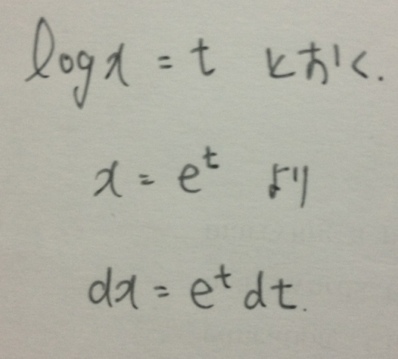 log x = t とおく.
x = e^t より
dx = e^t dt.